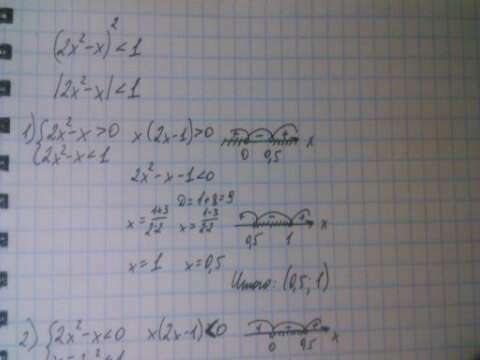 (2x²-x)²<1
|2x²-x|<1
1) {2x²-x>0 x(2x-1)>0 + - + x
0 0,5
{2x²-x<1
2x²-x-1<0
D=1+8=9
x=1+3/2·2 x=1-3/2·2 + - + x
0,5 1
x=1 x=0,5
Итого: (0,5; 1)
2) {2x²-x<0 x(2x-1)<0 + - + x
0 0,5